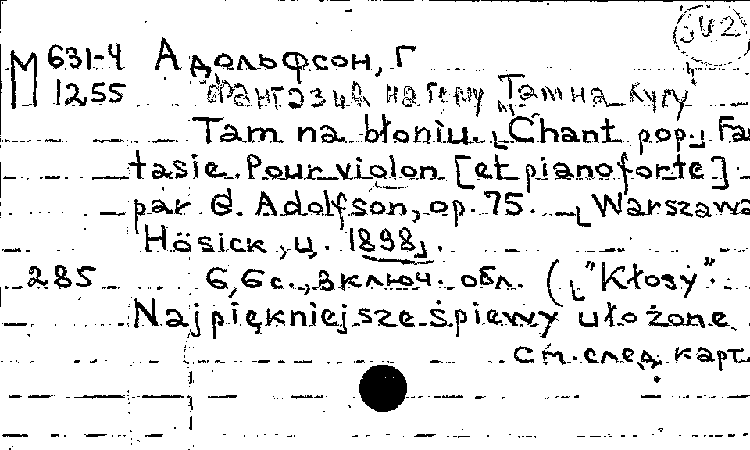 342
М 631-4 Адольфсон, Г
1255 Фантазия на тему "Там на лугу"
Tam na błoniu. [Chant pop.] Fan
tasie. Pour violon [et pianoforte]
par G. Adolfson, op. 75. - [Warszawa
Hösick, ц. 1898].
285 6,6 с., включ. обл. ([ "Kłosy".
Najpiękniejsze śpiewy ułożone
см. след. карт.